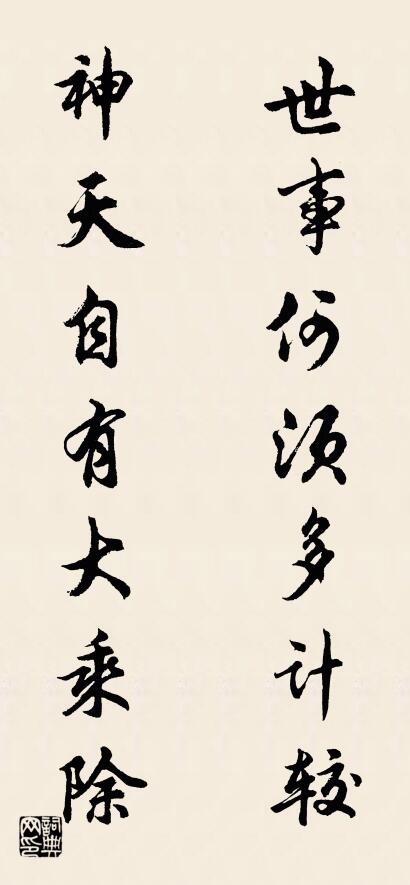 世事何须多计较
神天自有大乘除
詞典网印